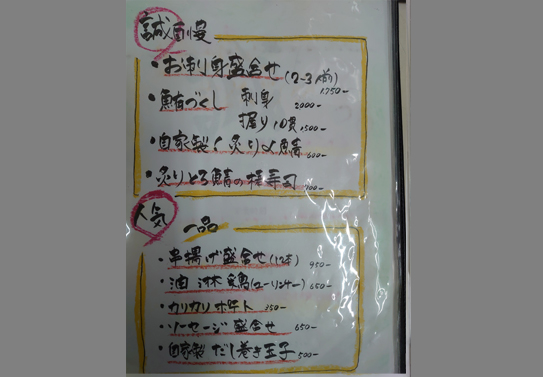 誠自慢
・お刺身盛合せ(2~3人前) 1750-
・鮪づくし 刺身 2000-
握り10貫 1500-
・自家製!炙り〆鯖 600-
・炙りとろ鯖の棒寿司 700-
人気 一品
・串揚げ盛合せ(12本) 950-
・油淋鶏(ユーリンチー) 650-
・カリカリポテト 350-
・ソーセージ盛合せ 650-
・自家製だし巻き玉子 500-